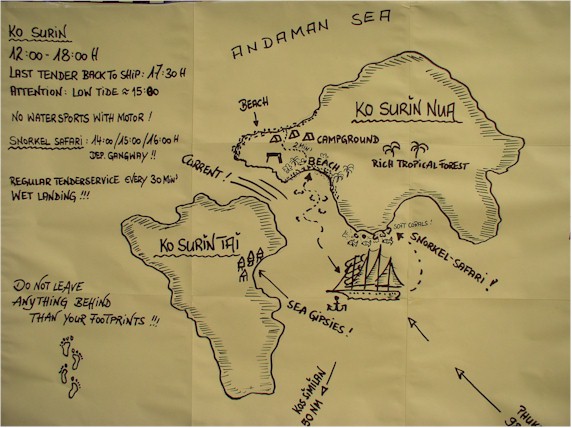 KO SURIN
12:00 - 18:00 H
LAST TENDER BACK TO SHIP: 17:30 H
ATTENTION: LOW TIDE ≈ 15:00
NO WATERSPORTS WITH MOTOR !
SNORKEL SAFARI: 14:00/15:00/16:00 H
DEP. GANGWAY !!
REGULAR TENDERSERVICE EVERY 30 MIN'
WET LANDING !!!
DO NOT LEAVE
ANYTHING BEHIND
THAN YOUR FOOTPRINTS !!!
ANDAMAN SEA
KO SURIN NUA
BEACH
CAMPGROUND
2 MIN
BEACH
RICH TROPICAL FOREST
CURRENT !
SOFT CORALS !
SNORKEL-SAFARI !
KO SURIN TAI
SEA GIPSIES !
KOS SIMILAN
50 NM
PHUK